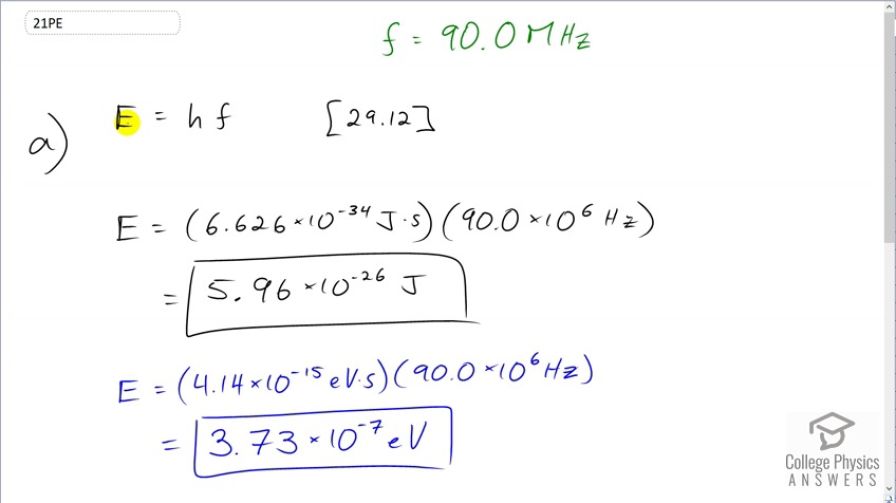 21PE
f = 90.0 MHz
a) E = h f [29.12]
E = (6.626×10⁻³⁴ J·s)(90.0×10⁶ Hz)
= 5.96×10⁻²⁶ J
E = (4.14×10⁻¹⁵ eV·s)(90.0×10⁶ Hz)
= 3.73×10⁻⁷ eV
College Physics
ANSWERS